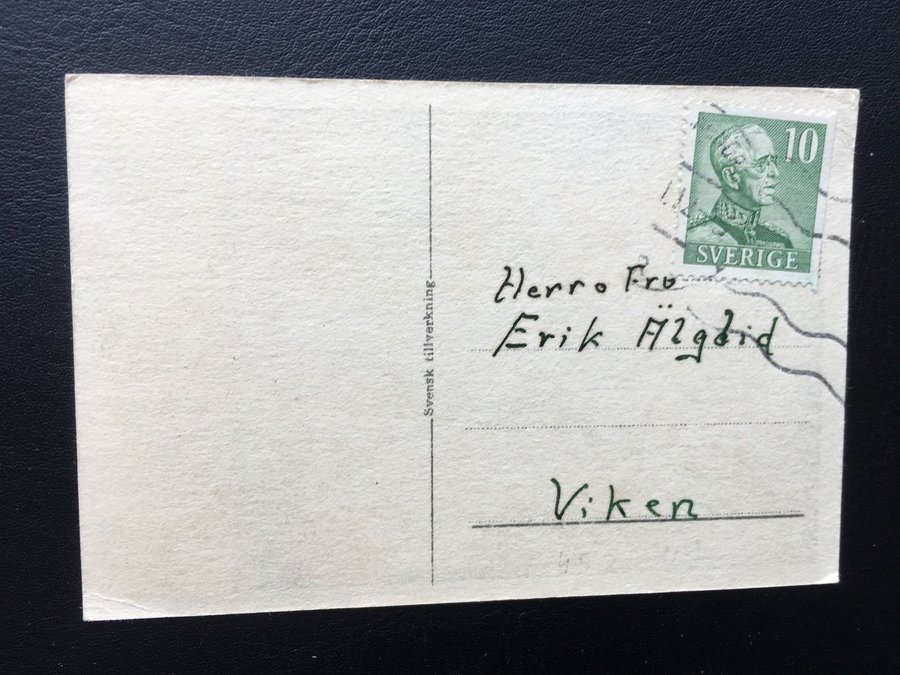 10
SVERIGE
Herr o Fru
Erik Älgeid
Viken
Svensk tillverkning